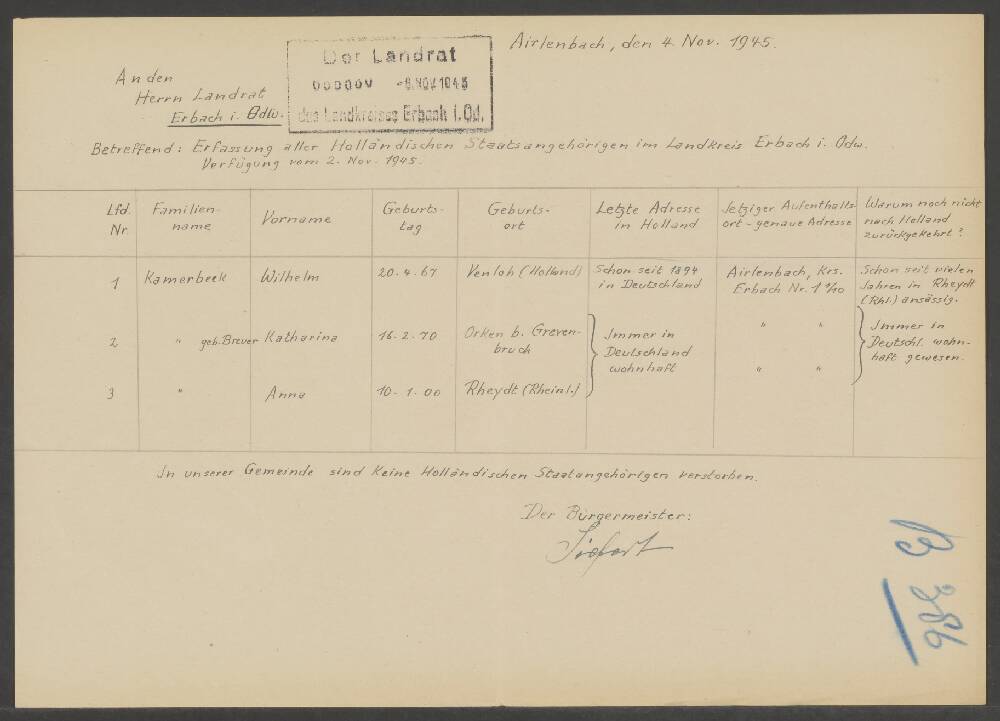 Airlenbach, den 4. Nov. 1945.
Der Landrat
-8. NOV 1945
des Landkreises Erbach i. Od.
An den
Herrn Landrat
Erbach i. Odw.
Betreffend: Erfassung aller Holländischen Staatsangehörigen im Landkreis Erbach i. Odw.
Verfügung vom 2. Nov. 1945.
Lfd. Nr.
Familien-
name
Vorname
Geburts-
tag
Geburts-
ort
Letzte Adresse
in Holland
Jetziger Aufenthalts-
ort - genaue Adresse
Warum noch nicht
nach Holland
zurückgekehrt?
1 Kamerbeek Wilhelm 20.4.67 Venloh (Holland)
Schon seit 1894
in Deutschland
Airlenbach, Krs.
Erbach Nr. 1
Schon seit vielen
Jahren in Rheydt
(Rhl.) ansässig.
2 " geb. Breuer Katharina 16.2.70 Orken b. Greven-
bruch
Immer in
Deutschland
wohnhaft
" "
Immer in
Deutschl. wohn-
haft gewesen.
3 " Anna 10.1.00 Rheydt (Rheinl.)
" "
In unserer Gemeinde sind keine Holländischen Staatangehörigen verstorben.
Der Bürgermeister: